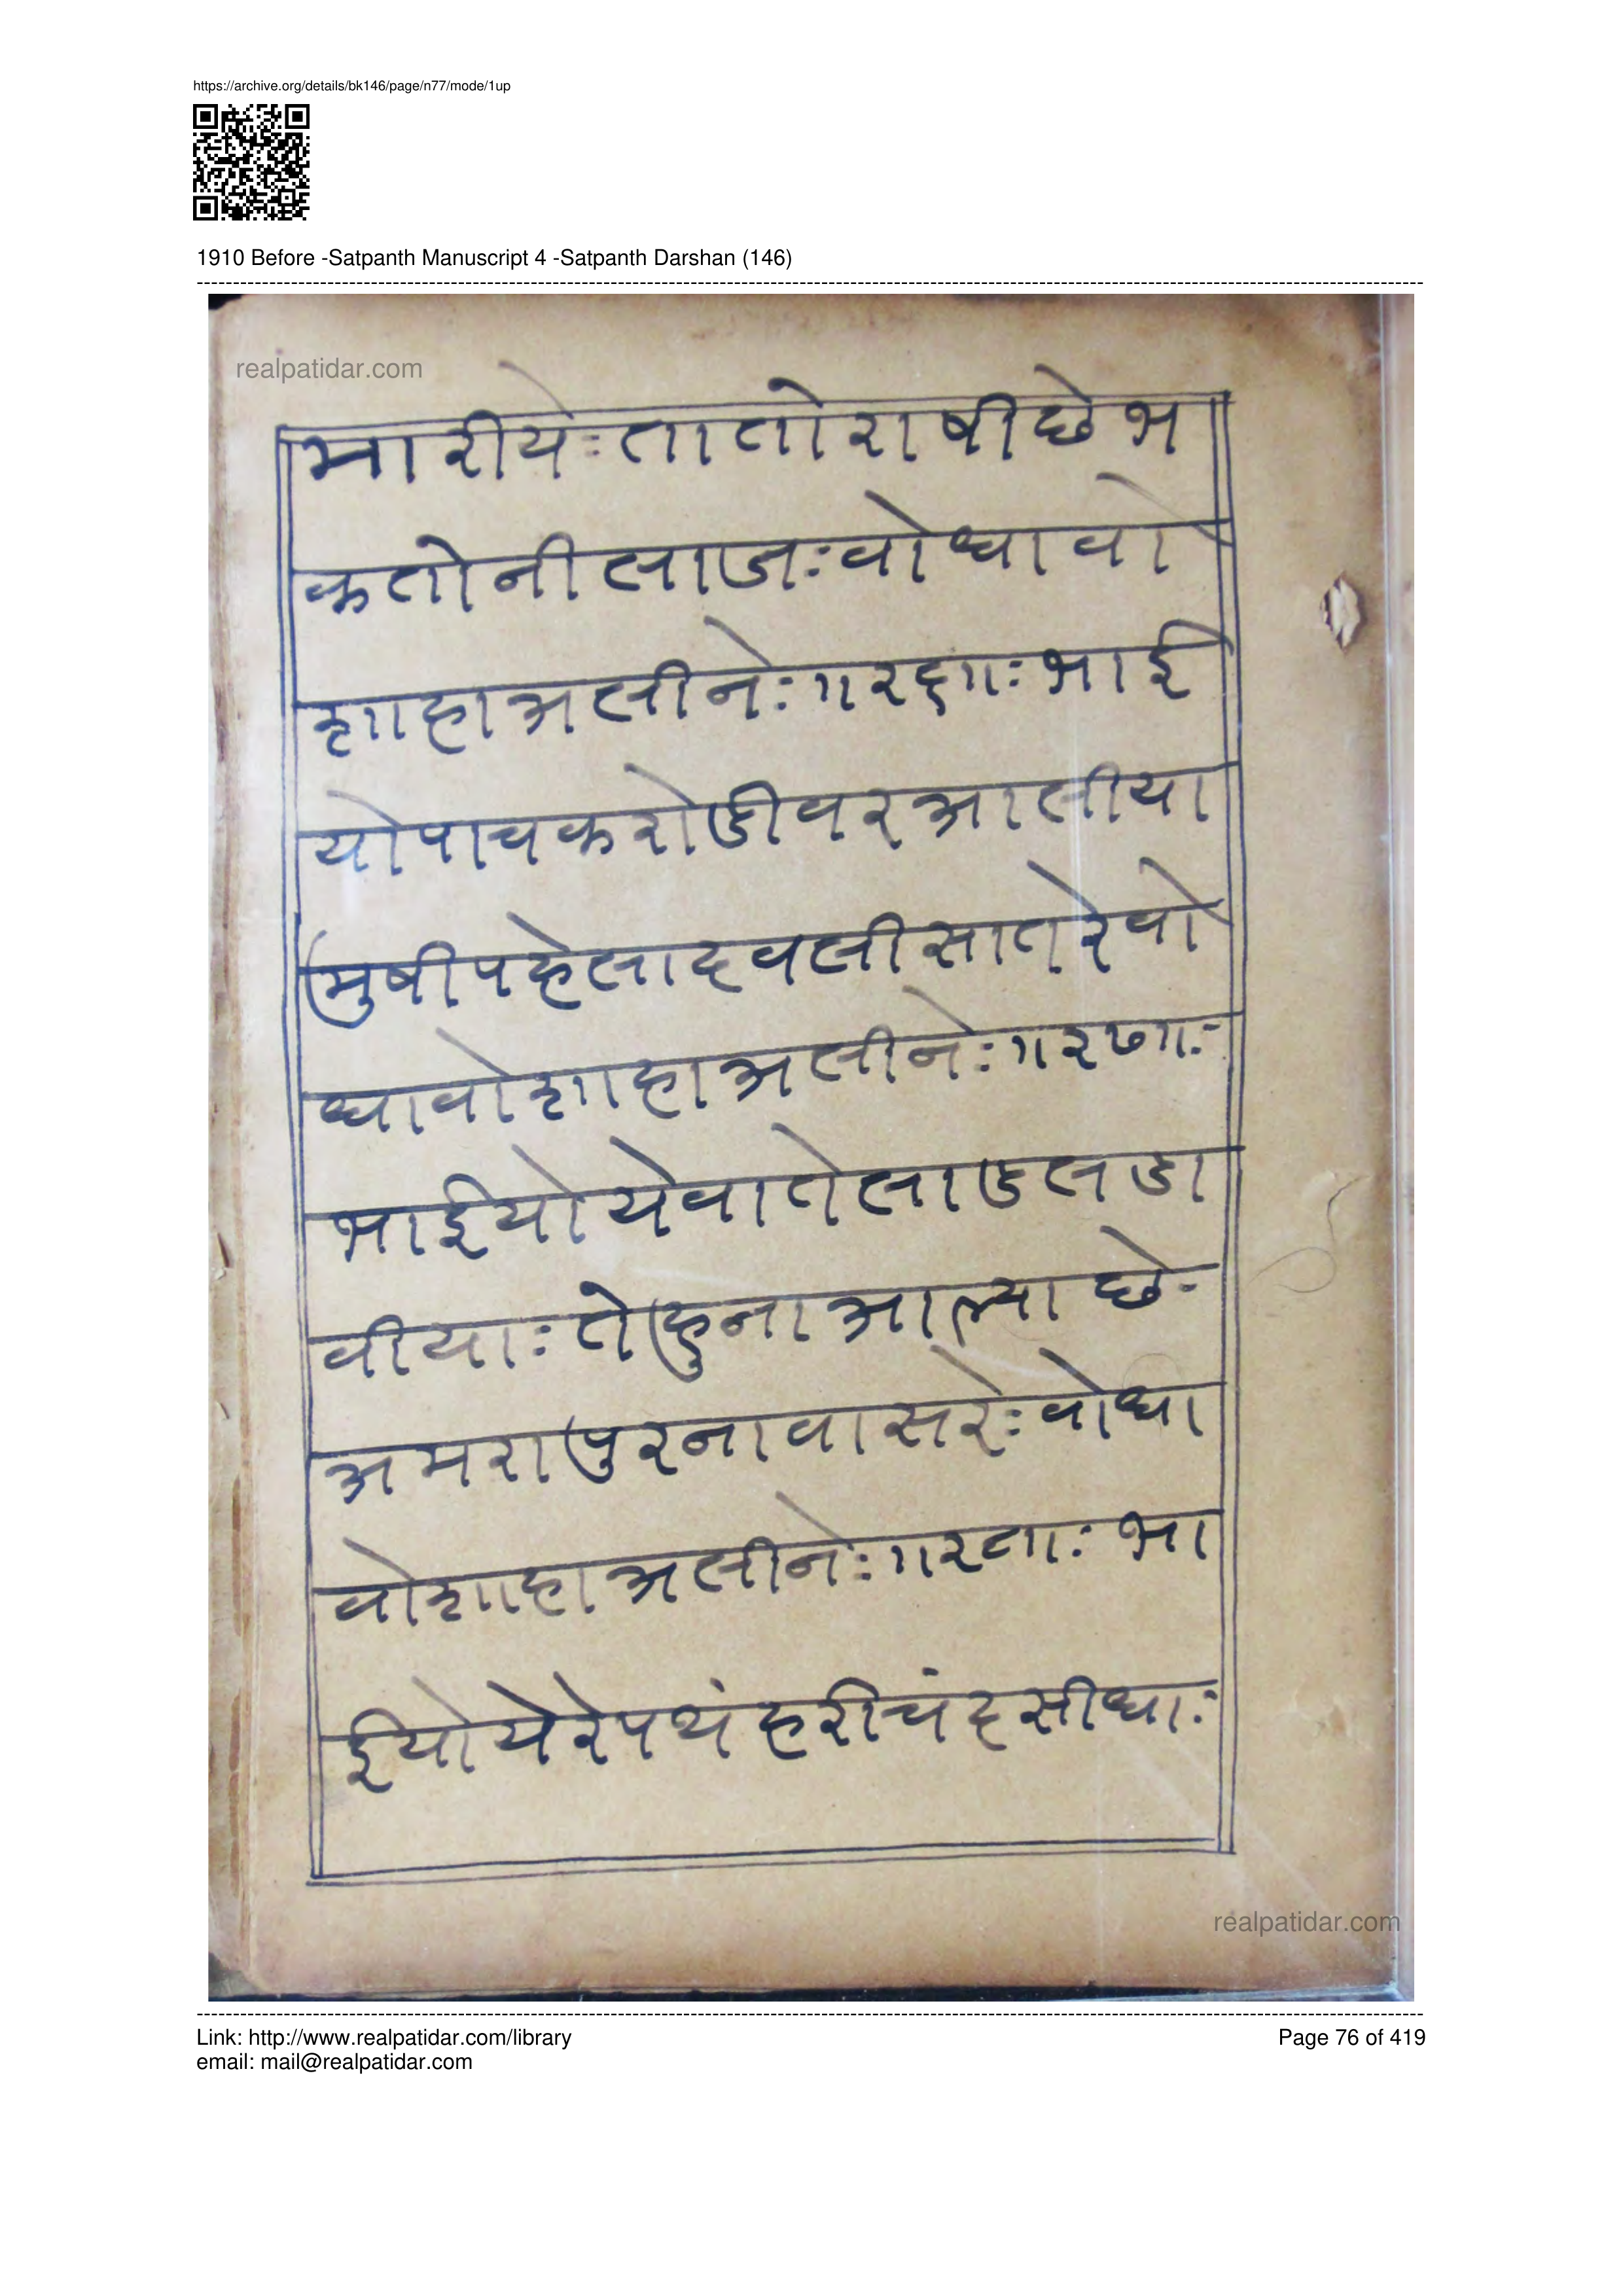 https://archive.org/details/bk146/page/n77/mode/1up
1910 Before -Satpanth Manuscript 4 -Satpanth Darshan (146)
realpatidar.com
मारीयेः तातोराषीछे भ
कतोनी लाजः वोधावो
शाहा अलीनेः ॥२६॥ः भाई
यो पाचकरोडी वर आलीया
मुषी पहेलाद वली सात रे वो
धावो शाहा अलीनेः ॥२७॥ः
भाईयो येवाते लाडलडा
वीयाः तेहुना आल्या छे
अमरापुरना वासरेः वोधा
वो शाहा अलीनेः ॥२८॥ः भा
ईयो येरे पथं हरीचंद सीधाः
realpatidar.com
Link: http://www.realpatidar.com/library
Page 76 of 419
email: mail@realpatidar.com